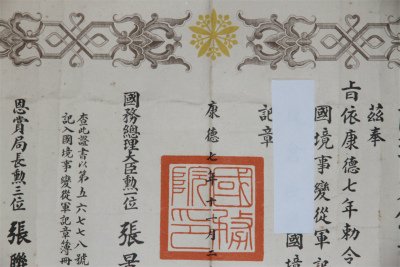 茲奉
上旨依康德七年勅令
國境事變從軍記
國境
記章
康德七年十一月三
國務院印
國務總理大臣勲一位 張景
查此證書以第五六七七八號
記入國境事變從軍記章簿冊
恩賞局長勲三位 張聯